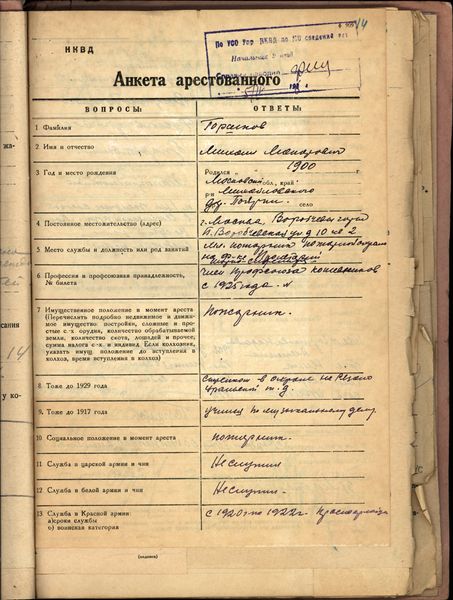 44
По УСО Упр. НКВД по МО сведений нет
Начальник
НКВД
Анкета арестованного
ВОПРОСЫ:
ОТВЕТЫ:
1 Фамилия
Горшков
2 Имя и отчество
Михаил Макарович
3 Год и место рождения
Родился 1900 г
Московской обл., край
р-н Михайловского
дер. село
4 Постоянное местожительство (адрес)
г. Москва, Воробьевы горы
д 10 кв 2
5 Место службы и должность или род занятий
пожарник
6 Профессия и профсоюзная принадлежность,
№ билета
член Профсоюза кожевников
с 1925 года.
7 Имущественное положение в момент ареста
(Перечислить подробно недвижимое и движи-
мое имущество постройки, сложные и про-
стые с.-х. орудия, количество обрабатываемой
земли, количество скота, лошадей и прочее,
сумма налога с-х. и индивид. Если колхозник,
указать имущ. положение до вступления в
колхоз, время вступления в колхоз)
пожарник.
8 Тоже до 1929 года
в охране на
ж. д.
9 Тоже до 1917 года
ученик по музыкальному делу.
10 Социальное положение в момент ареста
пожарник.
11 Служба в царской армии и чин
Не служил
12 Служба в белой армии и чин
Не служил.
13 Служба в Красной армии:
а) сроки службы
б) воинская категория
с 1920 г по 1922 г. Красноармеец
(подпись)
жа-
сания
14
у ко-